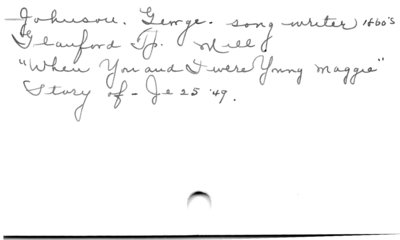 Johnson. George. song writer 1860's
Glanford Tp. Mill
"When You and I were Young Maggie"
Story of - Je 25 '49.